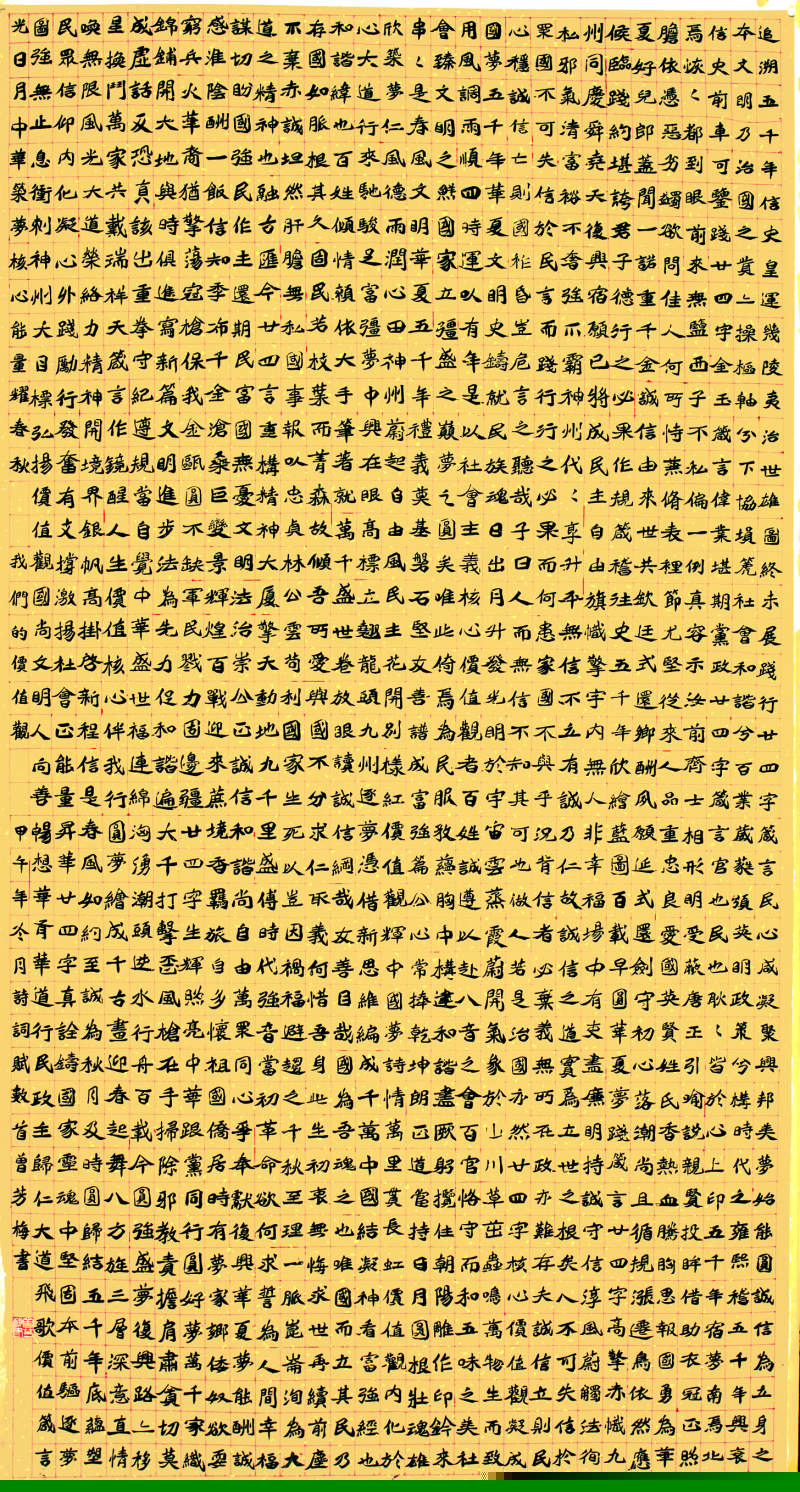 追溯五千年信史皇運幾陵夷治世雄圖終未展踐行廿四字箴言民心咸凝聚興邦类夢始能圓誠信為五身之
本文明乃治國之貲㆓操樞軸兮下協塤篪社會和諧兮百業葳蕤頌英明政策兮構時代之雍熙千稽五千年興衰
信史前車可鑒踐廿四字金玉箴言偉業堪期黨政廿四字箴言官也民也耿㆓皆於心上印五千年宿夢南焉北
焉恢㆓都到眼前來無鹽西子不私偏一例真容示汝前齊士相形明受蔽唐王引喻說親賢投眸借助衣冠正煦
膽依憑惡劣蠲欲問佳人何所恃蕙脩表裡節尤堅從來人品重忠良愛英賢姓氏香熱血勝胸思報國依勇為華
夏好兒郎蓋聞一諾重千金誠信由來世共欽廷式還鄉酬夙願延式還劍守初心落潮尚且循規漲遷鳥猶然應
候臨踐約堪誇君子德行之必果作規箴稽往史五千年欣繪藍圖百載早圓華夏夢踐箴言廿四字高擎赤幟九
州同慶舜堯天復興宿願已將成民主自由旗幟擎宇內無人非幸福場中有吏盡廉明持誠守信淳風蔚觸法徇
私邪氣清富裕不奢強不霸神州代㆓享升平無信不立有誠乃仁故誠信之道實為立世之根矣八不可失信於
眾國不可失信於民言而踐行行之必果而何患家國不興乎況背信者必棄之義無所在政亦難存夫誠信立則民
心穩誠信亡則國祚昏豈危言之聽哉子曰人而無信不知其可也做人若是治國亦然廿四字核心價值觀凝成
國夢五千年華夏文明史鑄就民族魂日出月升發光明於宇宙雲蒸霞蔚開氣象於山川草茁蟲鳴萬物生而致
用風調雨順四時運以有年是以社會主義核心價值觀者百姓誠遵以赴八音諧會百官恪守而和五味之美社
會臻文明之鮮國家立疆盛之巔夢之圓矣唯此倚焉為民服敎蘊胸中構建和諧盡厥躬攬住朝陽雕作印鈐來
串㆓是春風文明華夏五千年禮義英基磐石堅友善譜成富強篇公心常捧乾坤朗正道當持日月圓根壯魂雄
欣築夢仁風德雨潤心田神州蔚起自由風民主花開別樣紅價值觀輝中國夢詩情萬里貫長虹價值觀內化於
心大道行來馳駿足富疆夢中興在眼高標立翹龍頭九州逐夢憑借新思維編成千萬中國結凝神看富強經也
和諧緯也百姓傾情賴依大手筆著就萬千盛世卷放眼讀誠信綱哉友善目哉國為吾魂之也唯國而立其民乃
存國如脈根其久固民若枝葉而菁森故傾吾所愛與國不分求仁取義何惜吾身此生初衷無悔求世再續前塵
不棄赤誠坦然肝膽無私國事報以忠貞林公雲苟利國家生死以豈因禍福避趨之千秋至理一脈崑崙洵為大
道之精神也融古匯今廿四言重構精神大廈擎天動地九千里盛傅時代強音當初革命欲何求誓為人間幸福
謀切盼國強民作主還期民富國無憂文明法治崇公正誠信和諧尚自由萬眾同心爭奉獻復興華夏夢能酬誠
感淮陰酬一飯信知季布千金滄桑巨變景輝煌百戰迎來蕪境香羈旅多懷祖國僑居時有夢家鄉倭奴欲耍
窮兵火華裔猶擎蕩寇槍保我金甌圓不缺軍民戮力固邊疆廿四字生輝煦亮中華跟黨同行圓好夢萬千家織
錦鋪開大地興時俱進寫新篇文明進步法為先力促和諧遍大千打擊歪風槍在手掃除邪教責擔肩肅貪切莫
成虛話反恐真該出重拳守紀遵規當自覺中華盛世福連綿洶湧潮頭逆水行舟百載今圓強盛夢復興路㆓移
星換鬥萬家共戴瑞祥天箴言作鏡醒人生價值核心伴我行圓夢繪成千古畫迎春起舞八方旌三層深意直情
喚無限風光大道榮絡力精神開境界銀帆高掛啓新程信是春風如約至誠為秋月及時圓歸結五千年底蘊塑
民眾信仰內化凝心外踐勵行發奮有文撐激揚杜會正能量昇華廿四字真詮鑄國家靈魂中堅固本前驅逐夢
圖強無止息衝刺神州大目標弘揚價值觀國尚文明人向善暢想華胥華道行民政主歸仁大道飛歌價值箴言
光日月中華榮夢核心能量耀春秋
我們的價值觀
甲午年冬月詩詞賦數首曾芳梅書